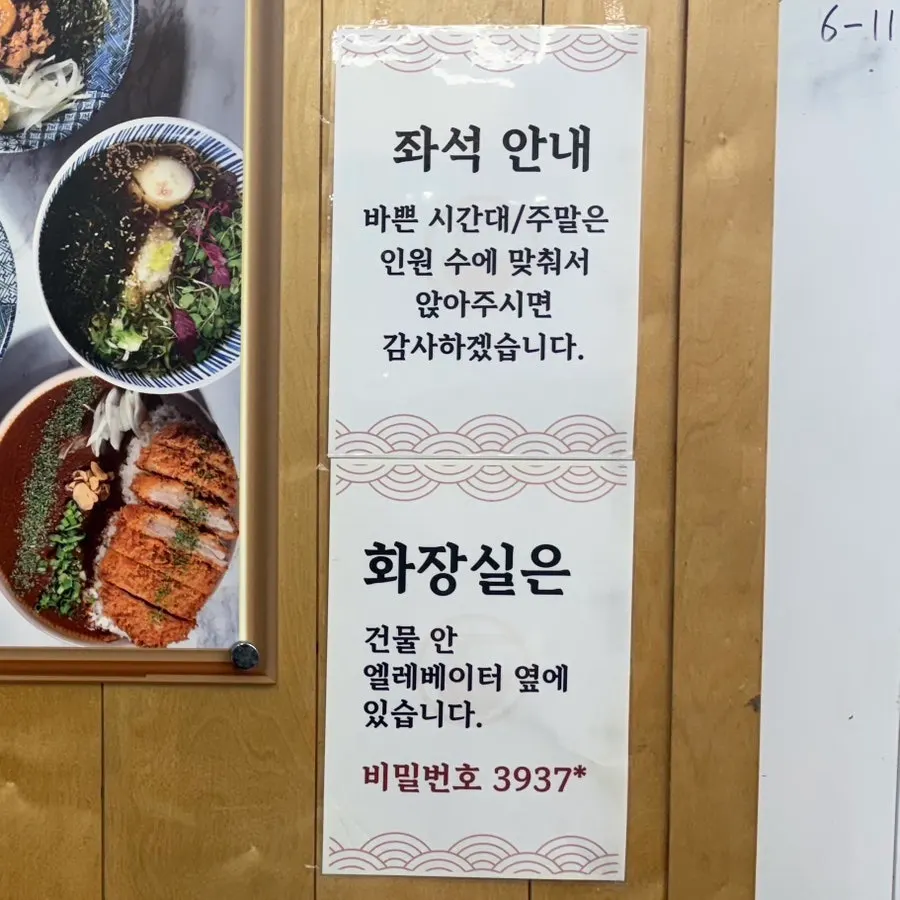 좌석 안내
바쁜 시간대/주말은
인원 수에 맞춰서
앉아주시면
감사하겠습니다.
화장실은
건물 안
엘레베이터 옆에
있습니다.
비밀번호 3937*
6-11